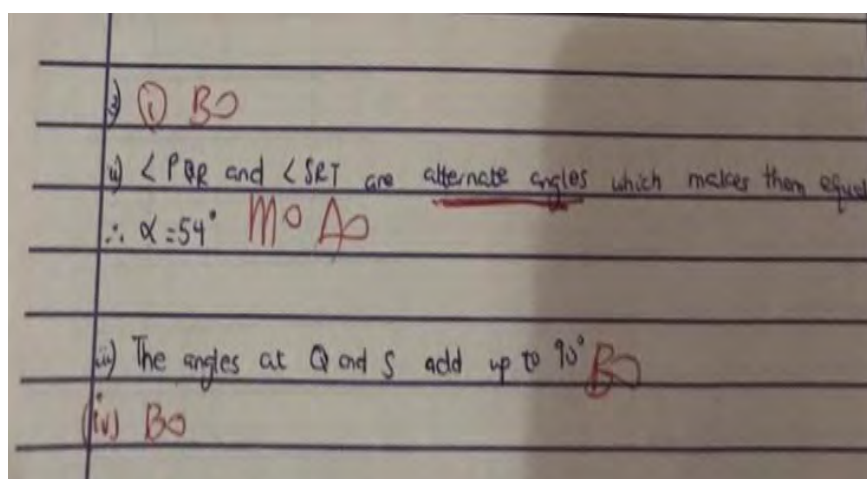 i) B0
ii) <PQR and <SRT are alternate angles which makes them equal
∴ α = 54° M0 A0
iii) The angles at Q and S add up to 90° B0
(iv) B0